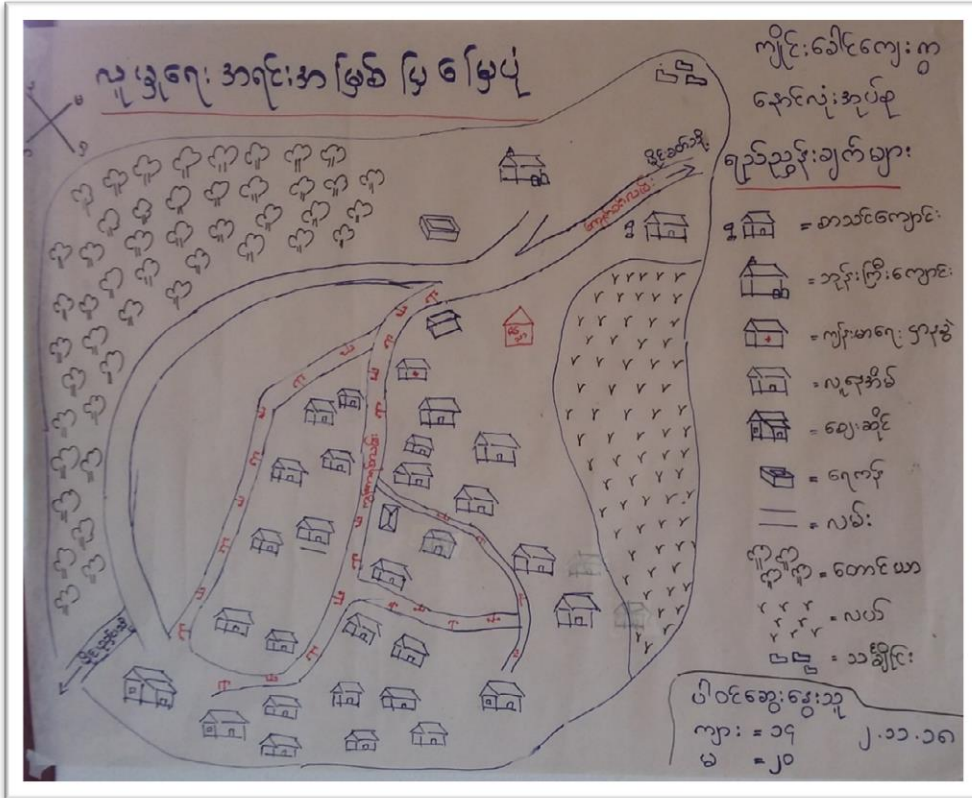 လူမှုရေး အရင်းအမြစ် ပြ မြေပုံ
ကျိုင်းခေါင်ကျေးရွာ
နောင်လုံးအုပ်စု
ရည်ညွှန်းချက်များ
= စာသင်ကျောင်း
= ဘုန်းကြီးကျောင်း
= ကျန်းမာရေး ဌာနခွဲ
= လူနေအိမ်
= ဈေးဆိုင်
= ရေကန်
= လမ်း
= တောင်ယာ
= လယ်
= သင်္ချိုင်း
ပါဝင်ဆွေးနွေးသူ
ကျား = ၁၄
မ = ၂၀
၂.၁၁.၁၈